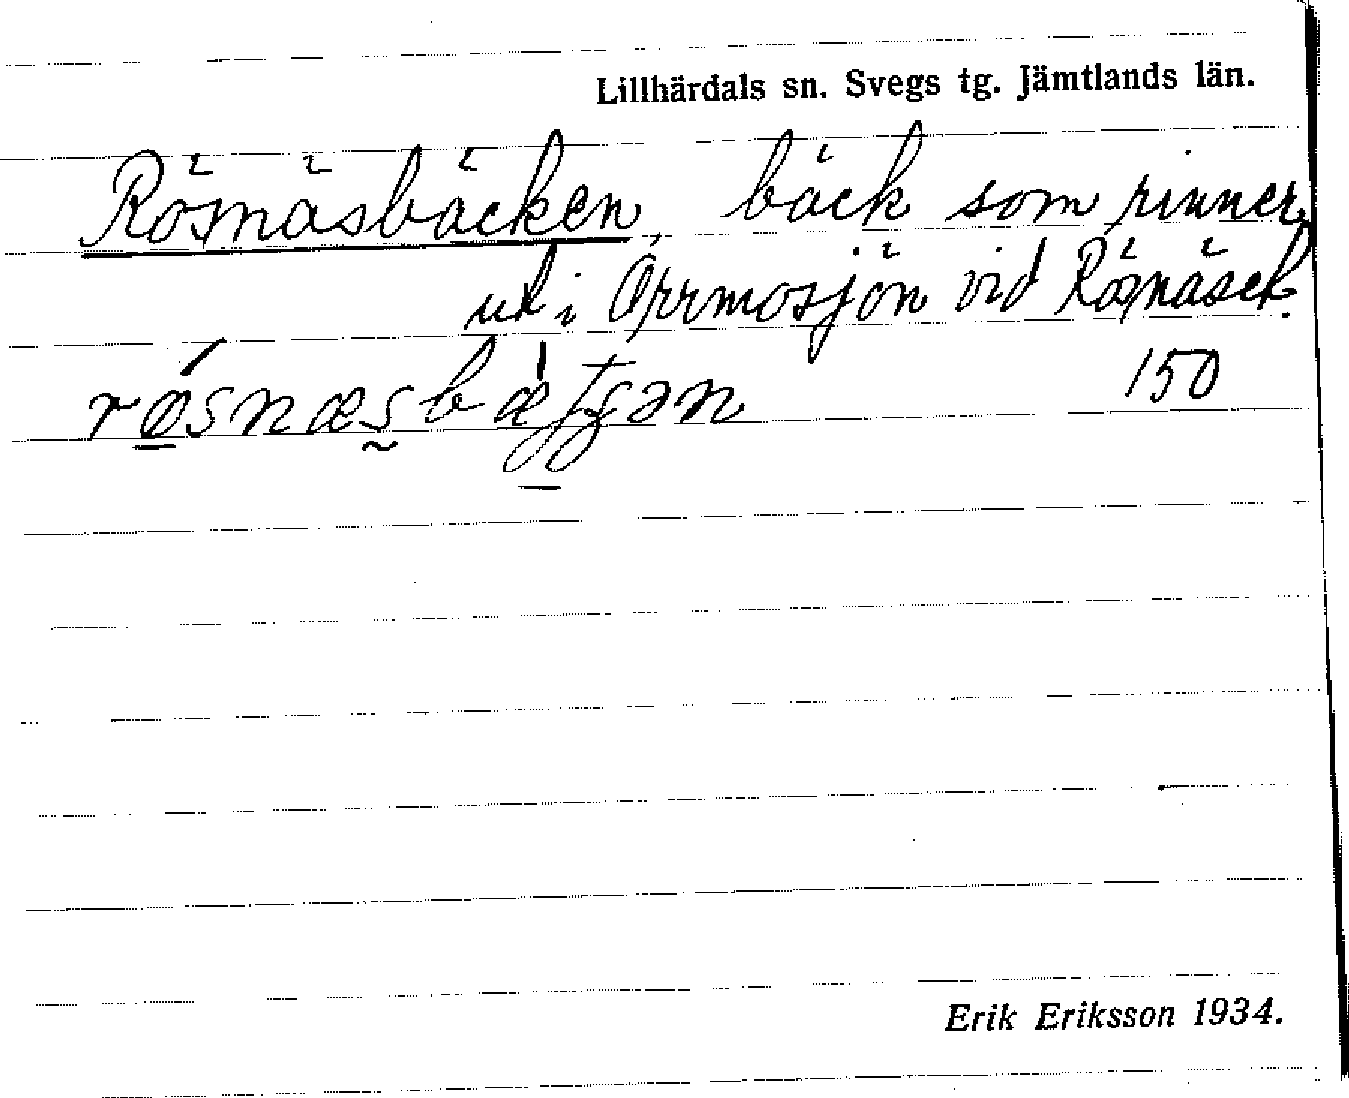 Lillhärdals sn. Svegs tg. Jämtlands län.
Rösnäsbäcken, bäck som rinner
ut i Orrmosjön vid Rösnäset.
røsnæsbæ 150
Erik Eriksson 1934.